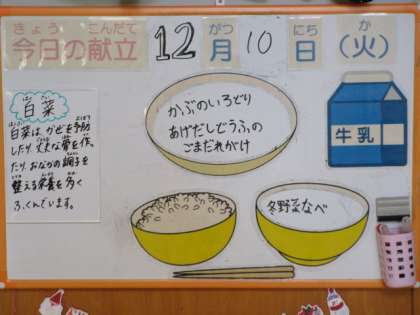 きょう こんだて がつ にち か
今日の献立 12月10日(火)
はくさい
白菜
白菜は、かぜを予防
したり、丈夫な骨を作っ
たり、おなかの調子を
整える栄養を多く
ふくんでいます。
かぶのいろどり
あげだしどうふの
ごまだれがけ
牛乳
冬野菜なべ